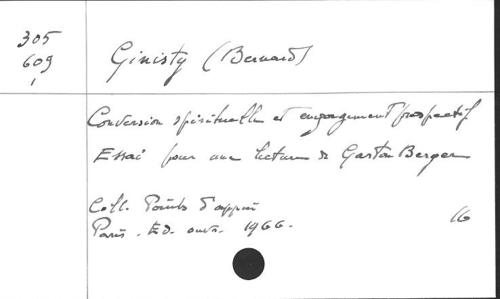 305
609
Ginisty (Bernard)
Conversion spirituelle et engagement prospectif
Essai pour une lecture de Gaston Berger
Coll. Points d'appui
Paris. Ed. ouvr. 1966.
16